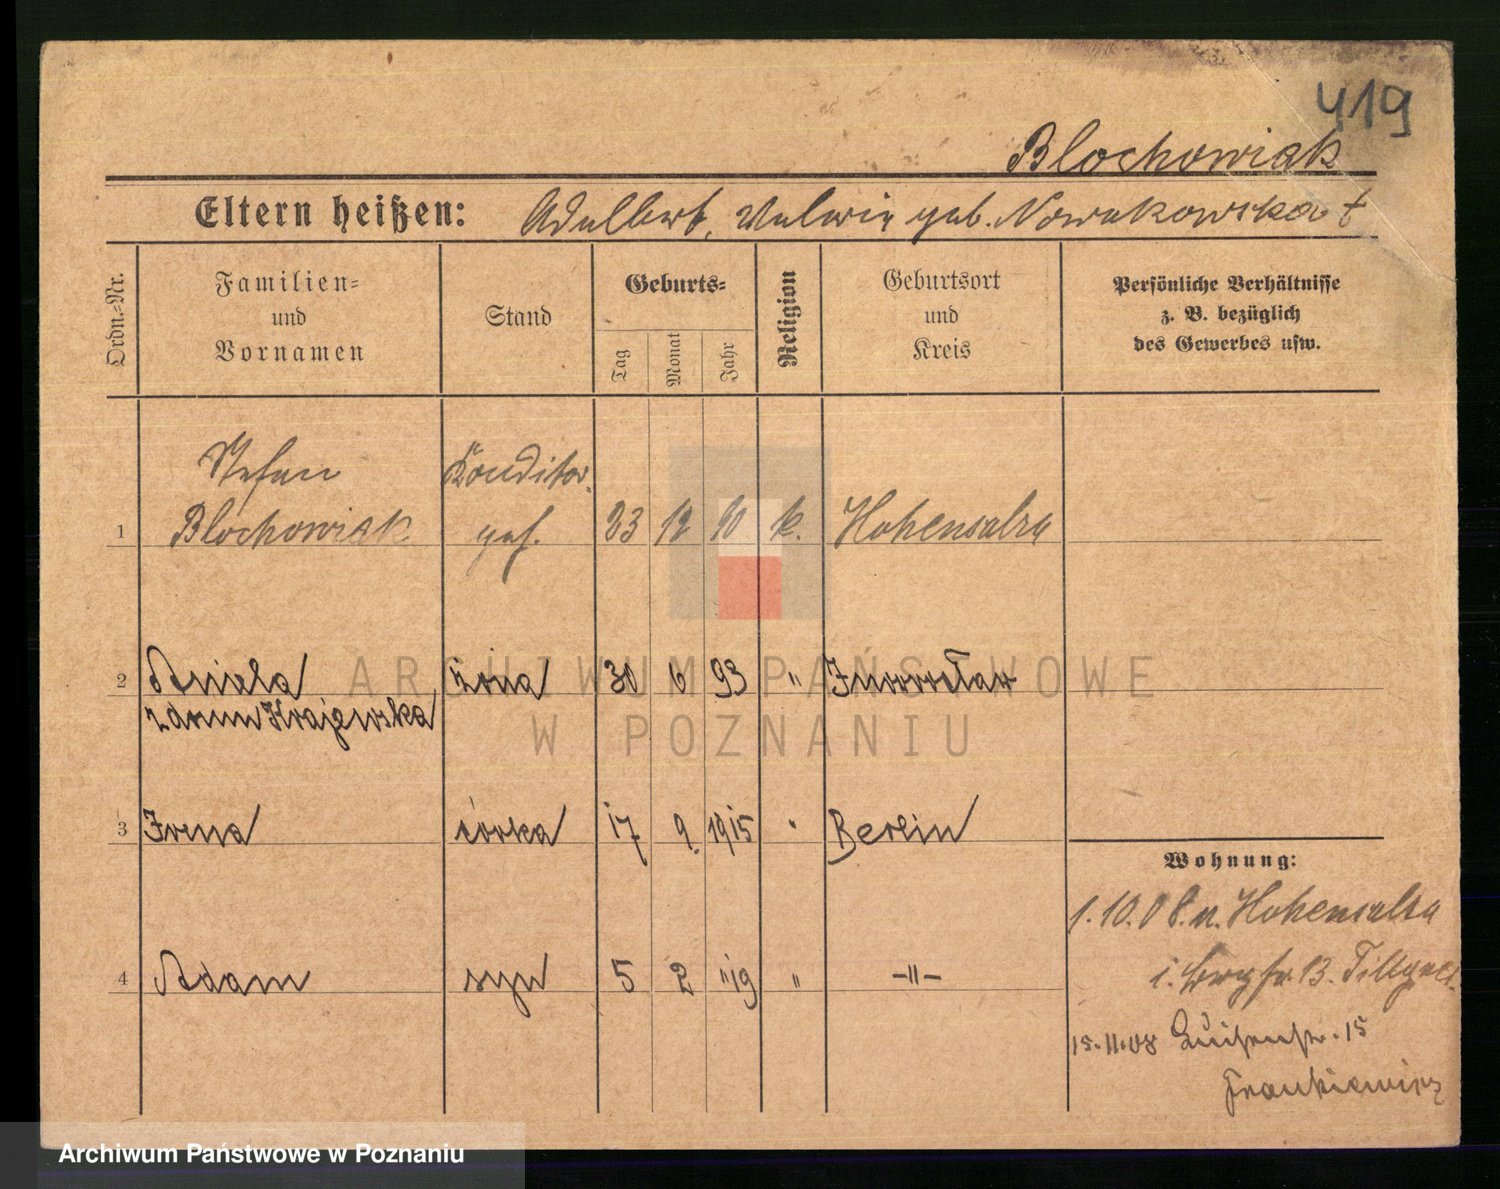 419
Blochowiak
Eltern heißen: Adalbert, Valerie geb. Nowakowska †
Ordn.-Nr.
Familien-
und
Vornamen
Stand
Geburts-
Tag
Monat
Jahr
Religion
Geburtsort
und
Kreis
Persönliche Verhältnisse
z. B. bezüglich
des Gewerbes usw.
Stefan Konditor
1 Blochowiak geh. 23 12 90 k. Hohensalza
2 Aniela żona 30 6 93 " Inowrocław
z domu Krajewska
3 Irena córka 17 9. 1915 " Berlin
Wohnung:
1.10.08. n. Hohensalza
4 Adam syn 5 2 "19 " -"-
i. 13.
15.11.08 Luisenstr. 15
Frankiewicz
ARCHIWUM PAŃSTWOWE
W POZNANIU
Archiwum Państwowe w Poznaniu